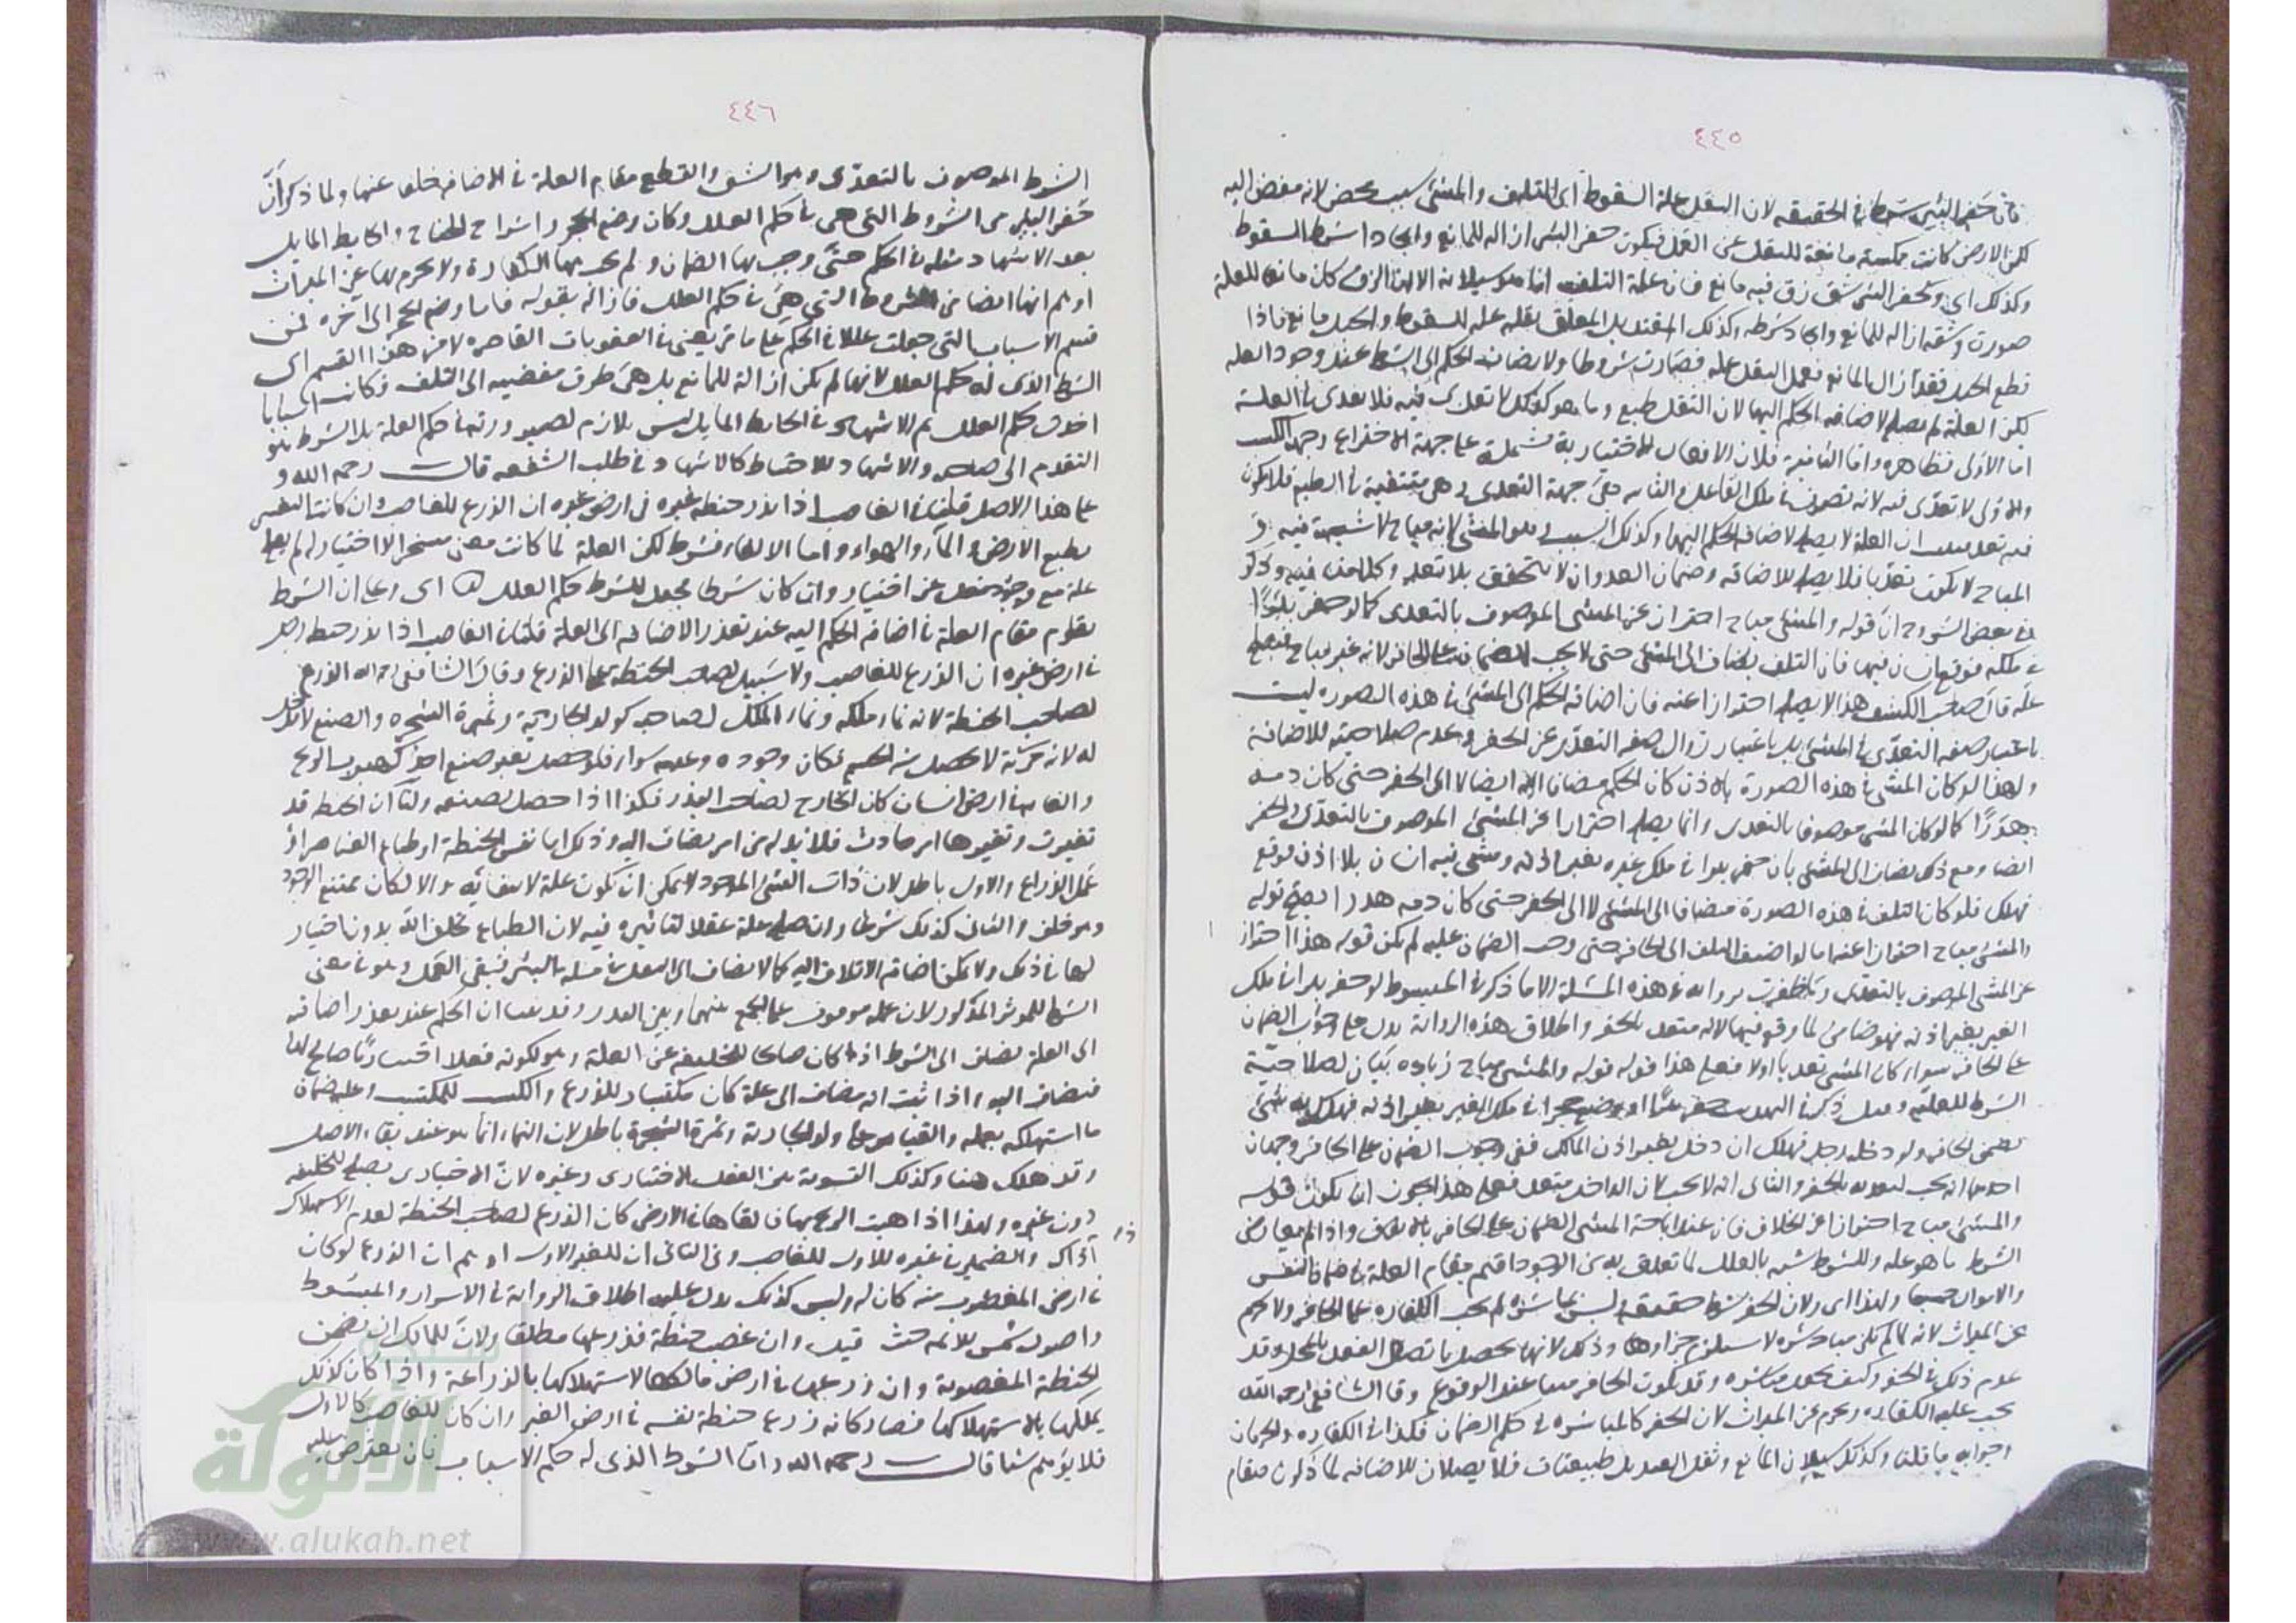 ٤٤٥
فان حفر البئر شرط في الحقيقه لان الثقل علة السقوط اى التلف والمشي سبب محض لانه مفض اليه
لكن الارض كانت ممسكة مانعة للثقل عن العمل فيكون حفر البئر ازاله للمانع وايجادا لشرط السقوط
وكذلك اى وكحفر البئر شق زق فيه مايع فان علة التلف انما هو سيلانه الا ان الزق كان مانعا للعلة
صورت وشقه ازاله للمانع وايجاد شرطه وكذلك القنديل المعلق ثقله علة للسقوط والحبل مانع فاذا
قطع الحبل فقد ازال المانع فعمل الثقل عمله فصارت شروطا ولا يضاف الحكم الى الشرط عند وجود العله
لكن العلة لم تصلح لاضافه الحكم اليها لان الثقل طبع وما هو كذلك لا تعدى فيه فلا تعدى في العلة
اما الاولى فظاهره واما الثانية فلان الافعال الاختيارية مشتملة على جهة الاختراع وجهة الكسب
والاولى لا تعدى فيه لانه تصرف في ملك الفاعل والثانيه هى جهة التعدى وهى منتفية في الطبع فلا يكون
فيه تعد فثبت ان العلة لا يصلح لاضافة الحكم اليها وكذلك السبب وهو المشي لانه مباح لا شبهة فيه و
المباح لا يكون تعديا فلا يصلح للاضافه وضمان العدوان لا يتحقق بلا تعد وكلامنا فيه وذكر
في بعض الشروح ان قوله والمشي مباح احتراز عن المشي الموصوف بالتعدى كما لو حفر بئرا
في ملكه فوقع انسان فيها فان التلف يضاف الى المشي حتى لا يجب الضمان على الحافر لانه غير مباح فيصلح
علة قال صاحب الكشف هذا لا يصلح احترازا عنه فان اضافه الحكم الى المشي في هذه الصوره ليست
باعتبار صفه التعدى في المشي بل باعتبار زوال صفه التعدى عن الحفر وعدم صلاحيته للاضافة
ولهذا لو كان المشي في هذه الصورة بالاذن كان الحكم مضافا اليه ايضا لا الى الحفر حتى كان دمه
هدرا كما لو كان المشي موصوفا بالتعدى وانما يصلح احترازا عن المشي الموصوف بالتعدى والحفر
ايضا ومع ذلك يضاف الى المشي بان حفر بئرا في ملك غيره بغير اذنه ومشى فيه انسان بلا اذن فوقع
فهلك فلو كان التلف في هذه الصورة مضافا الى المشي لا الى الحفر حتى كان دمه هدرا ليصح قوله
والمشي مباح احترازا عنه اما لو اضيف التلف الى الحافر حتى وجب الضمان عليه لم يكن قوله هذا احتراز
عن المشي الموصوف بالتعدى وما ظفرت بروايه في هذه المسئلة الا ما ذكر في المبسوط لو حفر بئرا في ملك
الغير بغير اذنه فهو ضامن لما وقع فيها لانه متعد بالحفر واطلاق هذه الرواية يدل على وجوب الضمان
على الحافر سواء كان المشي تعديا اولا فعلى هذا قوله والمشي مباح زياده بيان لصلاحية
الشرط للعلية
يضمن الحافر ولو دخله رجل فهلك ان دخل بغير اذن المالك ففي وجوب الضمان على الحافر وجهان
احدهما انه يجب لتعديه بالحفر والثانى انه لا يجب لان الداخل متعد فعلى هذا يجوز ان يكون قوله
والمشي مباح احترازا عن الخلاف فان عند اباحة المشي الضمان على الحافر بالاتفاق واذا لم يعارض
الشرط ما هو علة وللشرط شبه بالعلل لما تعلق به من الوجود اقيم مقام العلة في ضمان النفس
والاموال جميعا ولهذا اى ولان الحفر شرط حقيقه وليس بمباشرة لم تجب الكفاره على الحافر ولا يحرم
عن الميراث لانه لما لم تكن مباشره لا يستلزم جزاءها وذلك لانها تحصل باتصال الفعل بالمحل وقد
عدم ذلك في الحفر وكيف يجعل مباشره وقد يكون الحافر ميتا عند الوقوع وقال الشافعي رحمه الله
يجب عليه الكفاره ويحرم عن الميراث لان الحفر كالمباشره في حكم الضمان فكذا في الكفاره والحرمان
وجوابه ما قلنا وكذلك سيلان المايع وثقل القنديل طبيعتان فلا يصلحان للاضافه لما ذكرنا فقام
٤٤٦
الشرط الموصوف بالتعدى وهو الشق والقطع مقام العلة في الاضافه خلفا عنها ولما ذكر ان
حفر البئر من الشروط التى هى في حكم العلل وكان وضع الحجر واشراع الجناح والحايط المايل
بعد الاشهاد مثله في الحكم حتى وجب بها الضمان ولم تجب بها الكفارة ولا يحرم بها عن الميراث
اوهم انها ايضا من الشروط التى هى في حكم العلل فازاله بقوله فاما وضع الحجر الى آخره فمن
قسم الاسباب التى جعلت عللا في الحكم على ما مر يعنى في العقوبات القاصره لا من هذا القسم اى
الشرط الذى له حكم العلل لانها لم يكن ازالة للمانع بل هى طرق مفضيه الى التلف فكانت اسبابا
اخذت حكم العلل ثم الاشهاد في الحايط المايل ليس بلازم لصيرورته في حكم العلة بل الشرط هو
التقدم الى صاحبه والاشهاد للاحتياط كالاشهاد في طلب الشفعه قال رحمه الله و
على هذا الاصل قلنا في الغاصب اذا بذر حنطة غيره في ارض غيره ان الزرع للغاصب وان كان التغير
بطبع الارض والماء والهواء واما الالقاء فشرط لكن العلة لما كانت معنى مسخرا لا اختيار له لم يصلح
علة مع وجود فعل عن اختيار وان كان شرطا فجعل للشرط حكم العلل اى وعلى ان الشرط
يقوم مقام العلة في اضافه الحكم اليه عند تعذر الاضافه الى العلة قلنا في الغاصب اذا بذر حنطة رجل
في ارض غيره ان الزرع للغاصب ولا سبيل لصاحب الحنطة على الزرع وقال الشافعي رحمه الله الزرع
لصاحب الحنطة لانه نماء ملكه ونماء الملك لصاحبه كولد الجارية وثمرة الشجره والصنع لا مدخل
له لانه حركة لا يحصل منه الجسم فكان وجوده وعدمه سواء فلو حصل بغير صنع احد كهبوب الريح
والقائه في ارض انسان كان الخارج لصاحب البذر فكذا اذا حصل بصنعه ولنا ان الحنطة قد
تغيرت وتغيرها امر حادث فلا بد له من امر يضاف اليه وذلك اما نفس الحنطة او طباع العناصر او
عمل الزراع والاول باطل لان ذات الشئ الموجود لا يمكن ان تكون علة لانتفائه والا لكان ممتنع الوجود
وهو خلف والثانى كذلك شرعا وان صلح علة عقلا لتاثيره فيه لان الطباع بخلق الله بدون اختيار
لها في ذلك ولا يمكن اضافه الاتلاف اليه كما لا يضاف الى الثقل في مسئلة البئر فبقى العمل وهو في معنى
الشرط للموثر المذكور لان عمله موقوف على الجمع بينهما وبين البذر وقد بينا ان الحكم عند تعذر اضافته
الى العلة يضاف الى الشرط اذا كان صالحا للخليفه عن العلة وهو لكونه فعلا اختياريا صالح لها
فيضاف اليه واذا ثبت انه مضاف الى عمله كان مكتسبا للزرع والكسب للمكتسب وعليه ضمان
ما استهلكه بعمله والقياس على ولد الجارية وثمرة الشجرة باطل لان النماء انما هو عند بقاء الاصل
وقد هلك هنا وكذلك التسوية بين الفعل الاختيارى وغيره لان الاختيارى يصلح للخليفه
دون غيره ولهذا اذا هبت الريح بها فالقاها في الارض كان الزرع لصاحب الحنطة لعدم الاستهلاك
اذ ذاك والضمير في غيره للاول للغاصب وفى الثانى ان للغير الاول اوهم ان الزرع لو كان
في ارض المغصوب منه كان له وليس كذلك يدل عليه اطلاق الرواية في الاسرار والمبسوط
واصول شمس الائمه حيث قيل وان غصب حنطة فزرعها مطلقا ولان للمالك ان يضمن
الحنطة المغصوبة وان زرعها في ارض مالكها لاستهلاكها بالزراعة واذا كان كذلك
يملكها بالاستهلاك فصار كانه زرع حنطة نفسه في ارض الغير وان كان للغاصب كالاول
فلا يوهم شيئا قال رحمه الله واما الشرط الذى له حكم الاسباب فان يعترض عليه
الألوكة
www.alukah.net